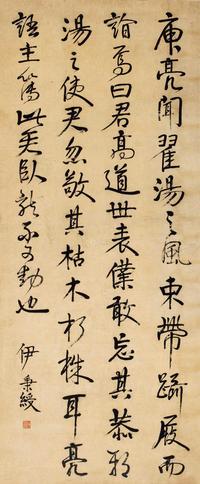 庾亮聞翟湯之風束帶躡屐而
詣焉曰君高道世表僕敢忘其恭邪
湯之使君忽敬其枯木朽株耳亮
語主簿此臥龍不可動也
伊秉綬